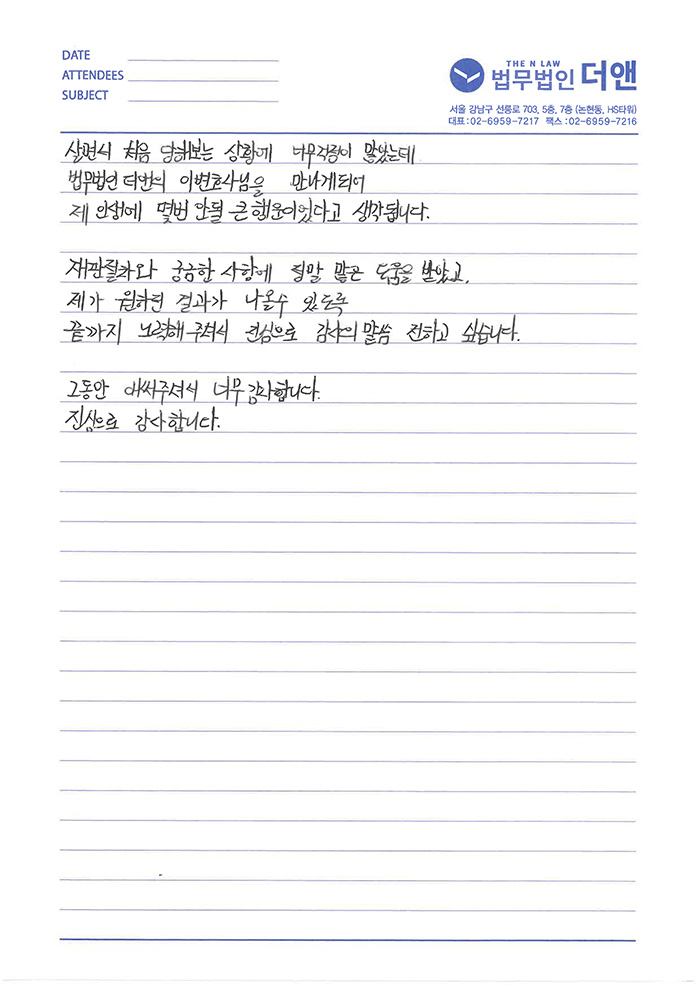 DATE
ATTENDEES
SUBJECT
THE N LAW
법무법인 더앤
서울 강남구 선릉로 703, 5층, 7층 (논현동, HS타워)
대표 : 02-6959-7217 팩스 : 02-6959-7216
살면서 처음 당해보는 상황에 너무걱정이 많았는데
법무법인 더앤의 이변호사님을 만나게되어
제 인생에 몇번 안될 큰 행운이었다고 생각됩니다.
재판절차와 궁금한 사항에 정말 많은 도움을 받았고,
제가 원하던 결과가 나올수 있도록
끝까지 노력해 주셔서 진심으로 감사의 말씀 전하고 싶습니다.
그동안 애써주셔서 너무 감사합니다.
진심으로 감사합니다.